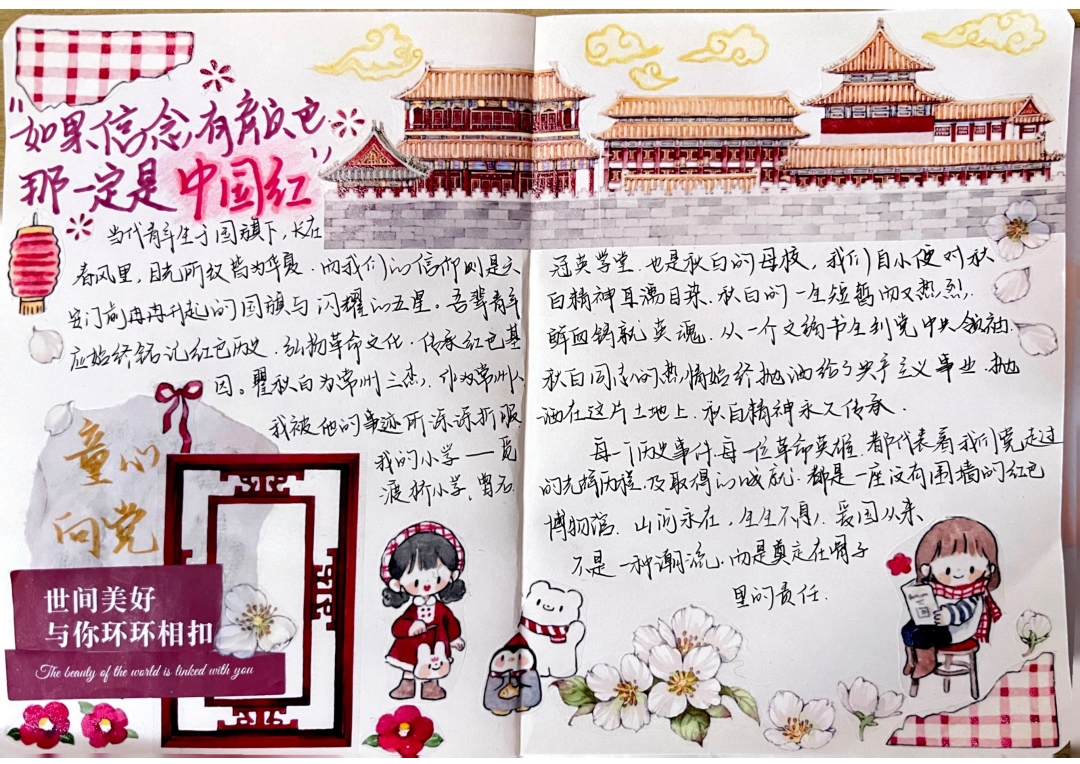 "如果信念有颜色
那一定是中国红"
当代青年生于国旗下，长在
春风里，目光所致皆为华夏，而我们的信仰则是天
安门前冉冉升起的国旗与闪耀的五星。吾辈青年
应始终铭记红色历史，弘扬革命文化，传承红色基
因。瞿秋白为常州三杰，作为常州人
我被他的事迹所深深折服
我的小学——觅
渡桥小学，曾名
童心
向党
世间美好
与你环环相扣
The beauty of the world is linked with you
冠英学堂，也是秋白的母校，我们自小便对秋
白精神耳濡目染。秋白的一生短暂而又热烈，
鲜血铸就英魂，从一个文绉书生到党中央领袖，
秋白同志的热情始终抛洒给了共产主义事业，抛
洒在这片土地上，秋白精神永久传承。
每一个历史事件，每一位革命英雄，都代表着我们党走过
的光辉历程，及取得的成就，都是一座没有围墙的红色
博物馆。山河永在，生生不息，爱国从来
不是一种潮流，而是奠定在骨子
里的责任。